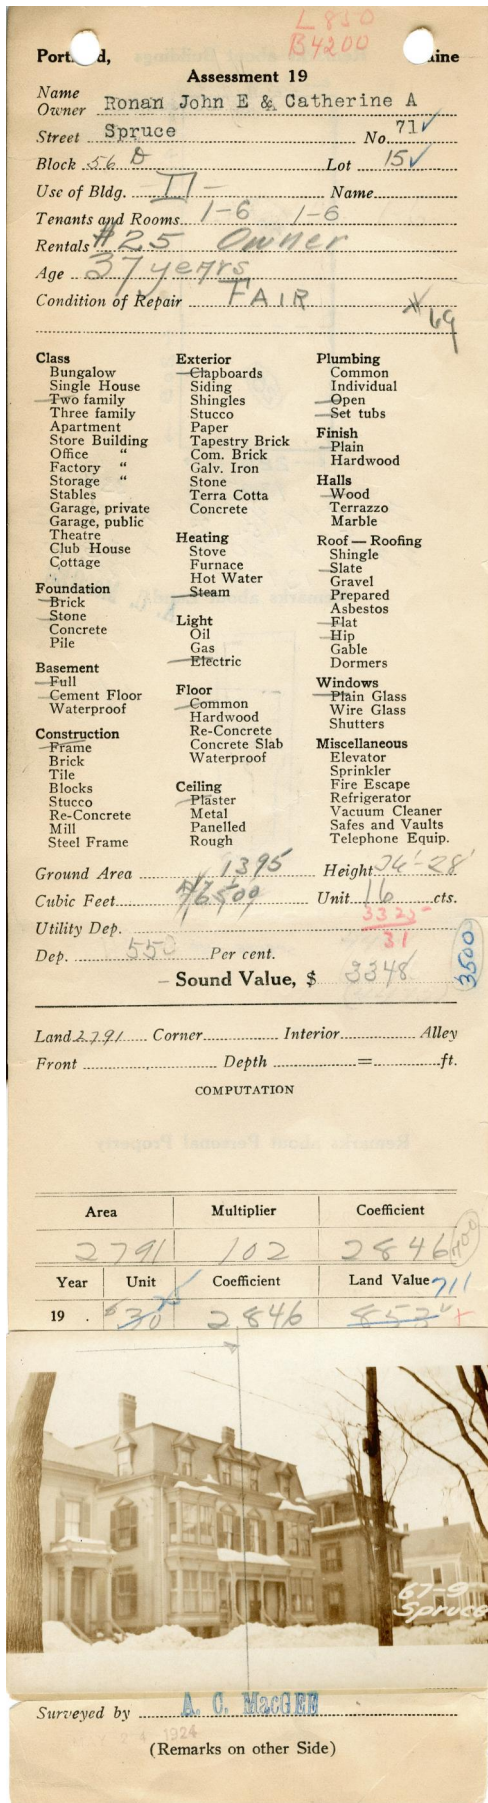 L 850
B 4200
Portland, Maine
Assessment 19
Name
Owner Ronan John E & Catherine A
Street Spruce No. 71✓
Block 56 D Lot 15✓
Use of Bldg. II Name
Tenants and Rooms 1-6 1-6
Rentals #25 Owner
Age 37 years
Condition of Repair FAIR
69
Class
Bungalow
Single House
Two family
Three family
Apartment
Store Building
Office "
Factory "
Storage "
Stables
Garage, private
Garage, public
Theatre
Club House
Cottage
Foundation
Brick
Stone
Concrete
Pile
Basement
Full
Cement Floor
Waterproof
Construction
Frame
Brick
Tile
Blocks
Stucco
Re-Concrete
Mill
Steel Frame
Exterior
Clapboards
Siding
Shingles
Stucco
Paper
Tapestry Brick
Com. Brick
Galv. Iron
Stone
Terra Cotta
Concrete
Heating
Stove
Furnace
Hot Water
Steam
Light
Oil
Gas
Electric
Floor
Common
Hardwood
Re-Concrete
Concrete Slab
Waterproof
Ceiling
Plaster
Metal
Panelled
Rough
Plumbing
Common
Individual
Open
Set tubs
Finish
Plain
Hardwood
Halls
Wood
Terrazzo
Marble
Roof — Roofing
Shingle
Slate
Gravel
Prepared
Asbestos
Flat
Hip
Gable
Dormers
Windows
Plain Glass
Wire Glass
Shutters
Miscellaneous
Elevator
Sprinkler
Fire Escape
Refrigerator
Vacuum Cleaner
Safes and Vaults
Telephone Equip.
Ground Area 1395 Height 26'-28'
Cubic Feet Unit 16 cts.
3325
Utility Dep. 31
Dep. 550 Per cent.
3500
Sound Value, $ 3348
Land 2791 Corner Interior Alley
Front Depth = ft.
COMPUTATION
Area Multiplier Coefficient
2791 102 2846
700
Year Unit Coefficient Land Value 711
19 . $30 25 2846 853
67-9
Spruce
Surveyed by A. C. MacGEE
1924
(Remarks on other Side)